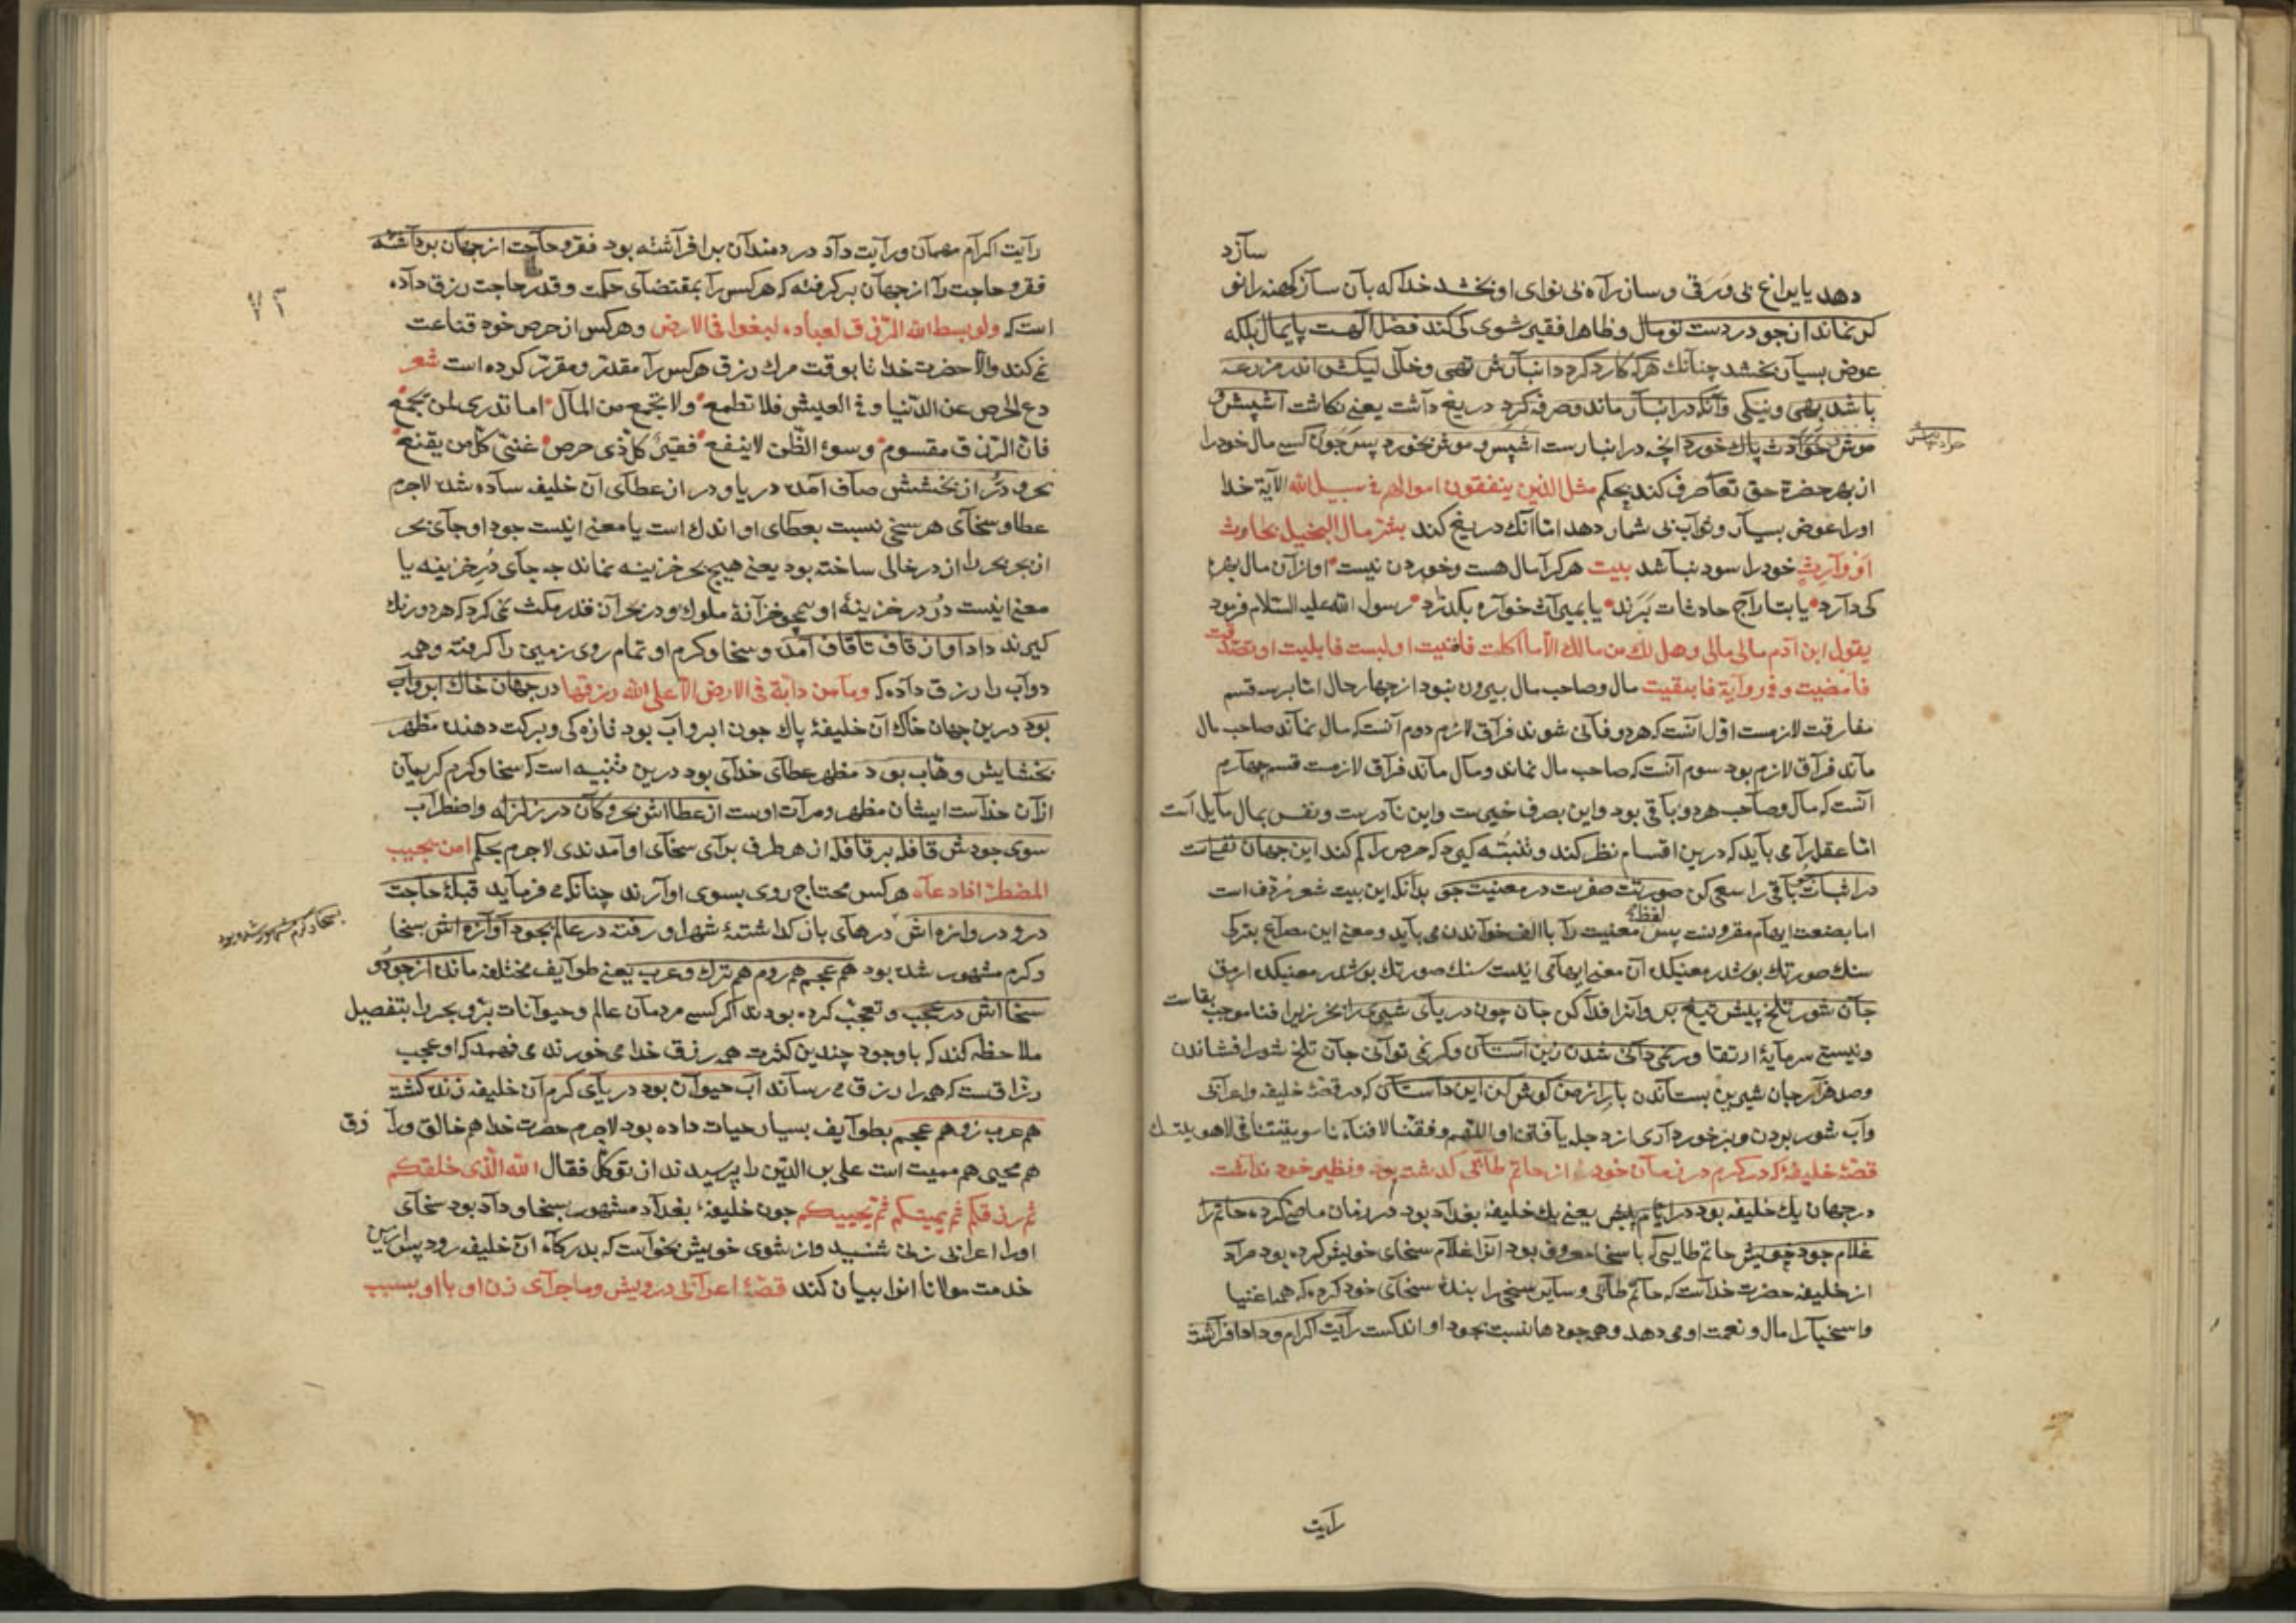 سازد
دهد یا یراغ بی ورقی و ساز راه بی نوای او بخشد خدا که بآن ساز کهنه را نو
کر نماند از جود در دست تو مال و ظاهرا فقیر شوی کی کند فضل الهت پایمال بلکه
عوض بسیار بخشد چنانك هرکه کارد کردد انبارش تهی و خالی لیکش اندر مزرعه
باشد بهی و نیکی وآنکه در انبار ماند و صرفه کرد دریغ داشت یعنی نکاشت اشپش و
موش حوادث پاك خورد انچه در انبارست اشپس و موش بخورد پس چون کسی مال خود را
از بهر حضرة حق تعا صرف کند بحکم مثل الذین ینفقون اموالهم فی سبیل الله الآیة خدا
اورا عوض بسیار و ثواب بی شمار دهد اما آنك دریغ کند بشر مال البخیل بحادث
او وارث خود را سود نباشد بیت هرکرا مال هست و خوردن نیست او ازان مال بهره
کی دارد یا بتاراج حادثات برند یا بمیراث خواره بکذرد رسول الله علیه السلام فرمود
یقول ابن آدم مالی مالی و هل لك من مالك الا ما اکلت فافنیت او لبست فابلیت او تصدقت
فامضیت و فی روایة فابقیت مال و صاحب مال بیرون نبود از چهار حال اما بر سه قسم
مفارقت لازمست اول انست که هر دو فانی شوند فراق لازم دوم آنست که مال نماند صاحب مال
ماند فراق لازم بود سوم آنست که صاحب مال نماند و مال ماند فراق لازمست قسم چهارم
آنست که مال و صاحب هر دو باقی بود و این بصرف خیرست و این نادرست و نفس بمال مایل است
اما عقل را می باید که درین اقسام نظر کند و تنبه کیرد که حرص را کم کند این جهان نفیست
در اثبات باقی را سعی کن صورتت صفرست در معنیت جو بدانکه این بیت شعر مردف است
اما بصنعت ایهام مقرونست پس لفظ معنیت را با الف خواندن می باید و معنی این مصراع بترکی
سنك صورتك بوشدر معنیکده آن معنی ایهامی اینست سنك صورتك بوشدر معنیکده ارمق
جان شور تلخ پیش تیغ بر وآنرا فدا کن جان چون دریای شیرین را بخر زیرا فنا موجب بقاست
و نیستی سرمایهٔ ارتقا ور نمی دانی شدن زین آستان و کر نمی توانی جان تلخ شور افشاندن
و صد هزار جان شیرین بستاندن باری از من کوش کن این داستان که در قصهٔ خلیفه و اعرابی
و آب شور بودن و برخوردار
قصهٔ خلیفه که در کرم در زمان خود از حاتم طائی کذشته بود و نظیر خود نداشت
در جهان یك خلیفه بود در ایام پیش یعنی یك خلیفهٔ بغداد بود در زمان ماضی کرده حاتم را
غلام جود خویش حاتم طایی که با سخا معروف بود انرا غلام سخای خویش کرده بود مراد
از خلیفه حضرت خداست که حاتم طائی و سایر سخی را بندهٔ سخای خود کرده که همه اغنیا
و اسخیا را مال و نعمت او می دهد و همه جودها نسبت بجود او اندکست رایت اکرام و داد افراشته
رایت
۷۲
رایت اکرام مهمان و رایت داد دردمندان بر افراشته بود فقر و حاجت از جهان برداشته
فقر و حاجت را از جهان برکرفته که هرکس را بمقتضای حکمت و قدر حاجت رزق داده
است که ولو بسط الله الرزق لعباده لبغوا فی الارض و هرکس از حرص خود قناعت
نمی کند والا حضرت خدا تا بوقت مرك رزق هرکس را مقدر و مقرر کرده است شعر
دع الحرص عن الدنیا و فی العیش فلا تطمع ولا تجمع من المال اما تدری لمن تجمع
فان الرزق مقسوم و سوء الظن لا ینفع فقیر کل ذی حرص غنی کل من یقنع
بحر و در از بخششش صاف آمده دریا و در از عطای آن خلیفه ساده شد لاجرم
عطا و سخای هر سخی نسبت بعطای او اندك است یا معنی اینست جود او جای بحر
از بحر بحر را از در خالی ساخته بود یعنی هیچ بحر خزینه نماند چه جای در خزینه یا
معنی اینست در در خزینهٔ او همچو خزانهٔ ملوك و در بحر آن قدر مکث نمی کرد که هر دو رنك
کیرند داد او از قاف تا قاف آمده و سخا و کرم او تمام روی زمین را کرفته و همه
دواب را رزق داده که وما من دابة فی الارض الا علی الله رزقها در جهان خاك ابر و آب
بود درین جهان خاك آن خلیفهٔ پاك چون ابر و آب بود تازه کی و برکت دهنده مظهر
بخشایش وهاب بود مظهر عطای خدای بود درین تنبیه است که سخا و کرم کریمان
ازان خداست ایشان مظهر و مرآت اوست از عطااش بحر و کان در زلزله و اضطراب
سوی جودش قافله بر قافله از هر طرف برای سخای او آمدندی لاجرم بحکم امن یجیب
المضطر اذا دعاه هرکس محتاج روی بسوی او آرند چنانکه می فرماید قبلهٔ حاجت
در و دروازه اش درهای باز کذاشتهٔ شهر او رفته در عالم بجود آوازه اش بسخا
و کرم مشهور شده بود هم عجم هم روم هم ترك و عرب یعنی طوایف مختلفه مانده از جود و
سخااش در عجب و تعجب کرده بودند اکر کسی مردمان عالم و حیوانات بر و بحر را بتفصیل
ملاحظه کند که با وجود چندین کثرت همه رزق خدا می خورند می فهمد که او عجب
رزاقیست که همه را رزق می رساند آب حیوان بود دریای کرم آن خلیفه زنده کشته
هم عرب زو هم عجم بطوایف بسیار حیات داده بود لاجرم حضرت خدا هم خالق و رازق
هم محیی هم ممیت است علی بن الدین را پرسیدند از توکل فقال الله الذی خلقکم
ثم رزقکم ثم یمیتکم ثم یحییکم چون خلیفهٔ بغداد مشهور بسخا و داد بود سخای
اورا اعرابی زنی شنید و از شوی خویش بخواست که بدرکاه آن خلیفه رود پس ازین
خدمت مولانا انرا بیان کند قصهٔ اعرابی درویش و ماجرای زن او با او بسبب
بسخا و کرم مشهور شده بود